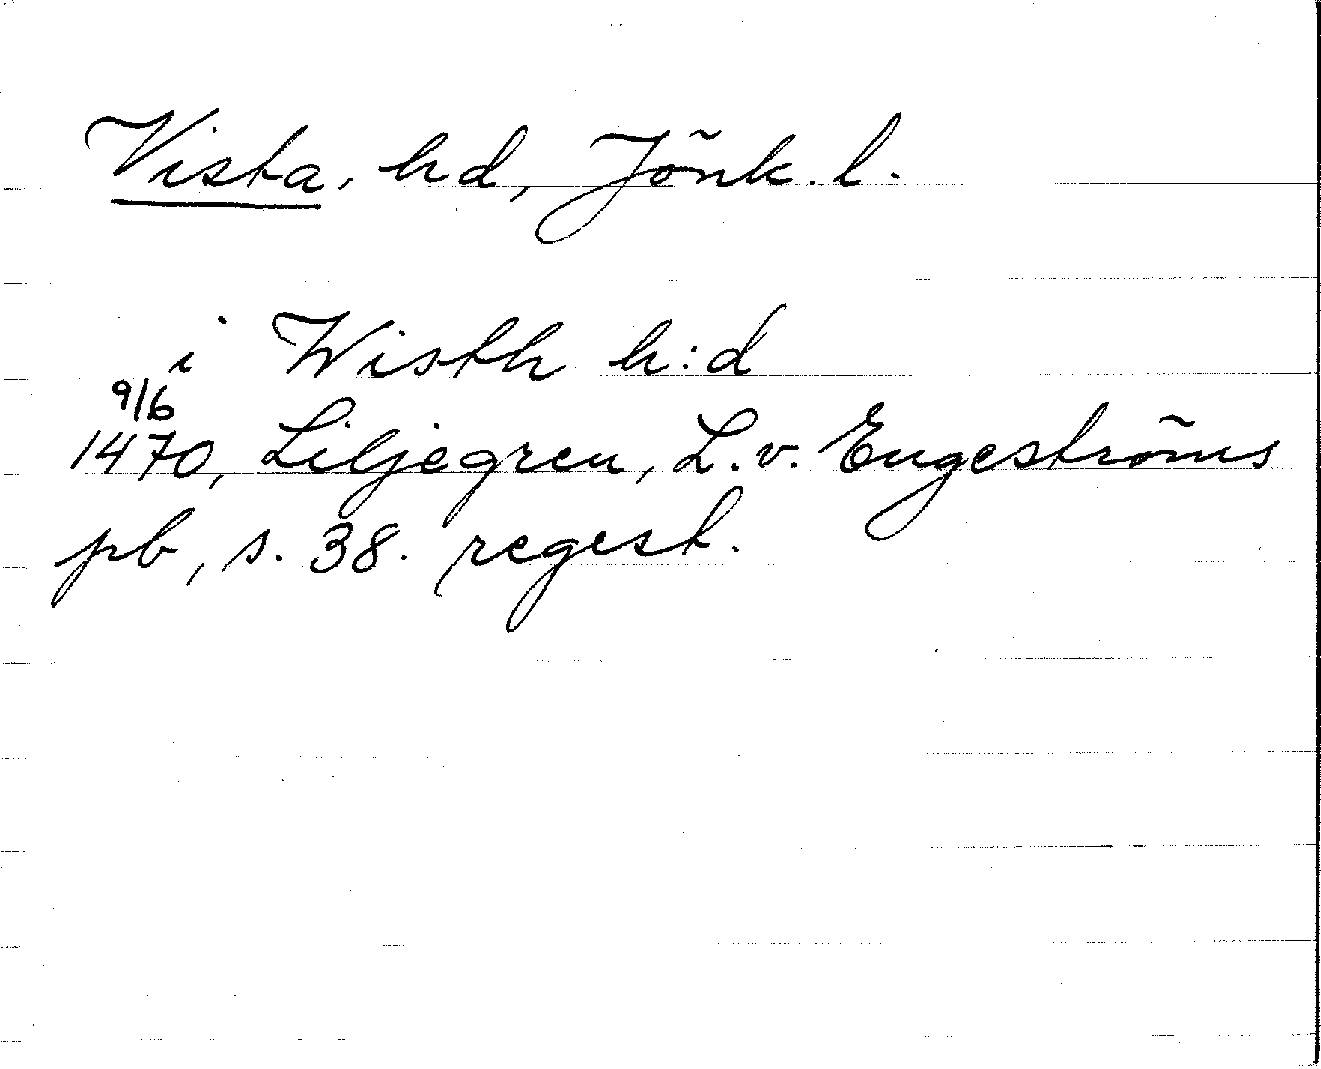 Vista, hd, Jönk. l.
i Wisth h:d
9/6
1470, Liljegren, L. v. Engeströms
pb, s. 38. regest.